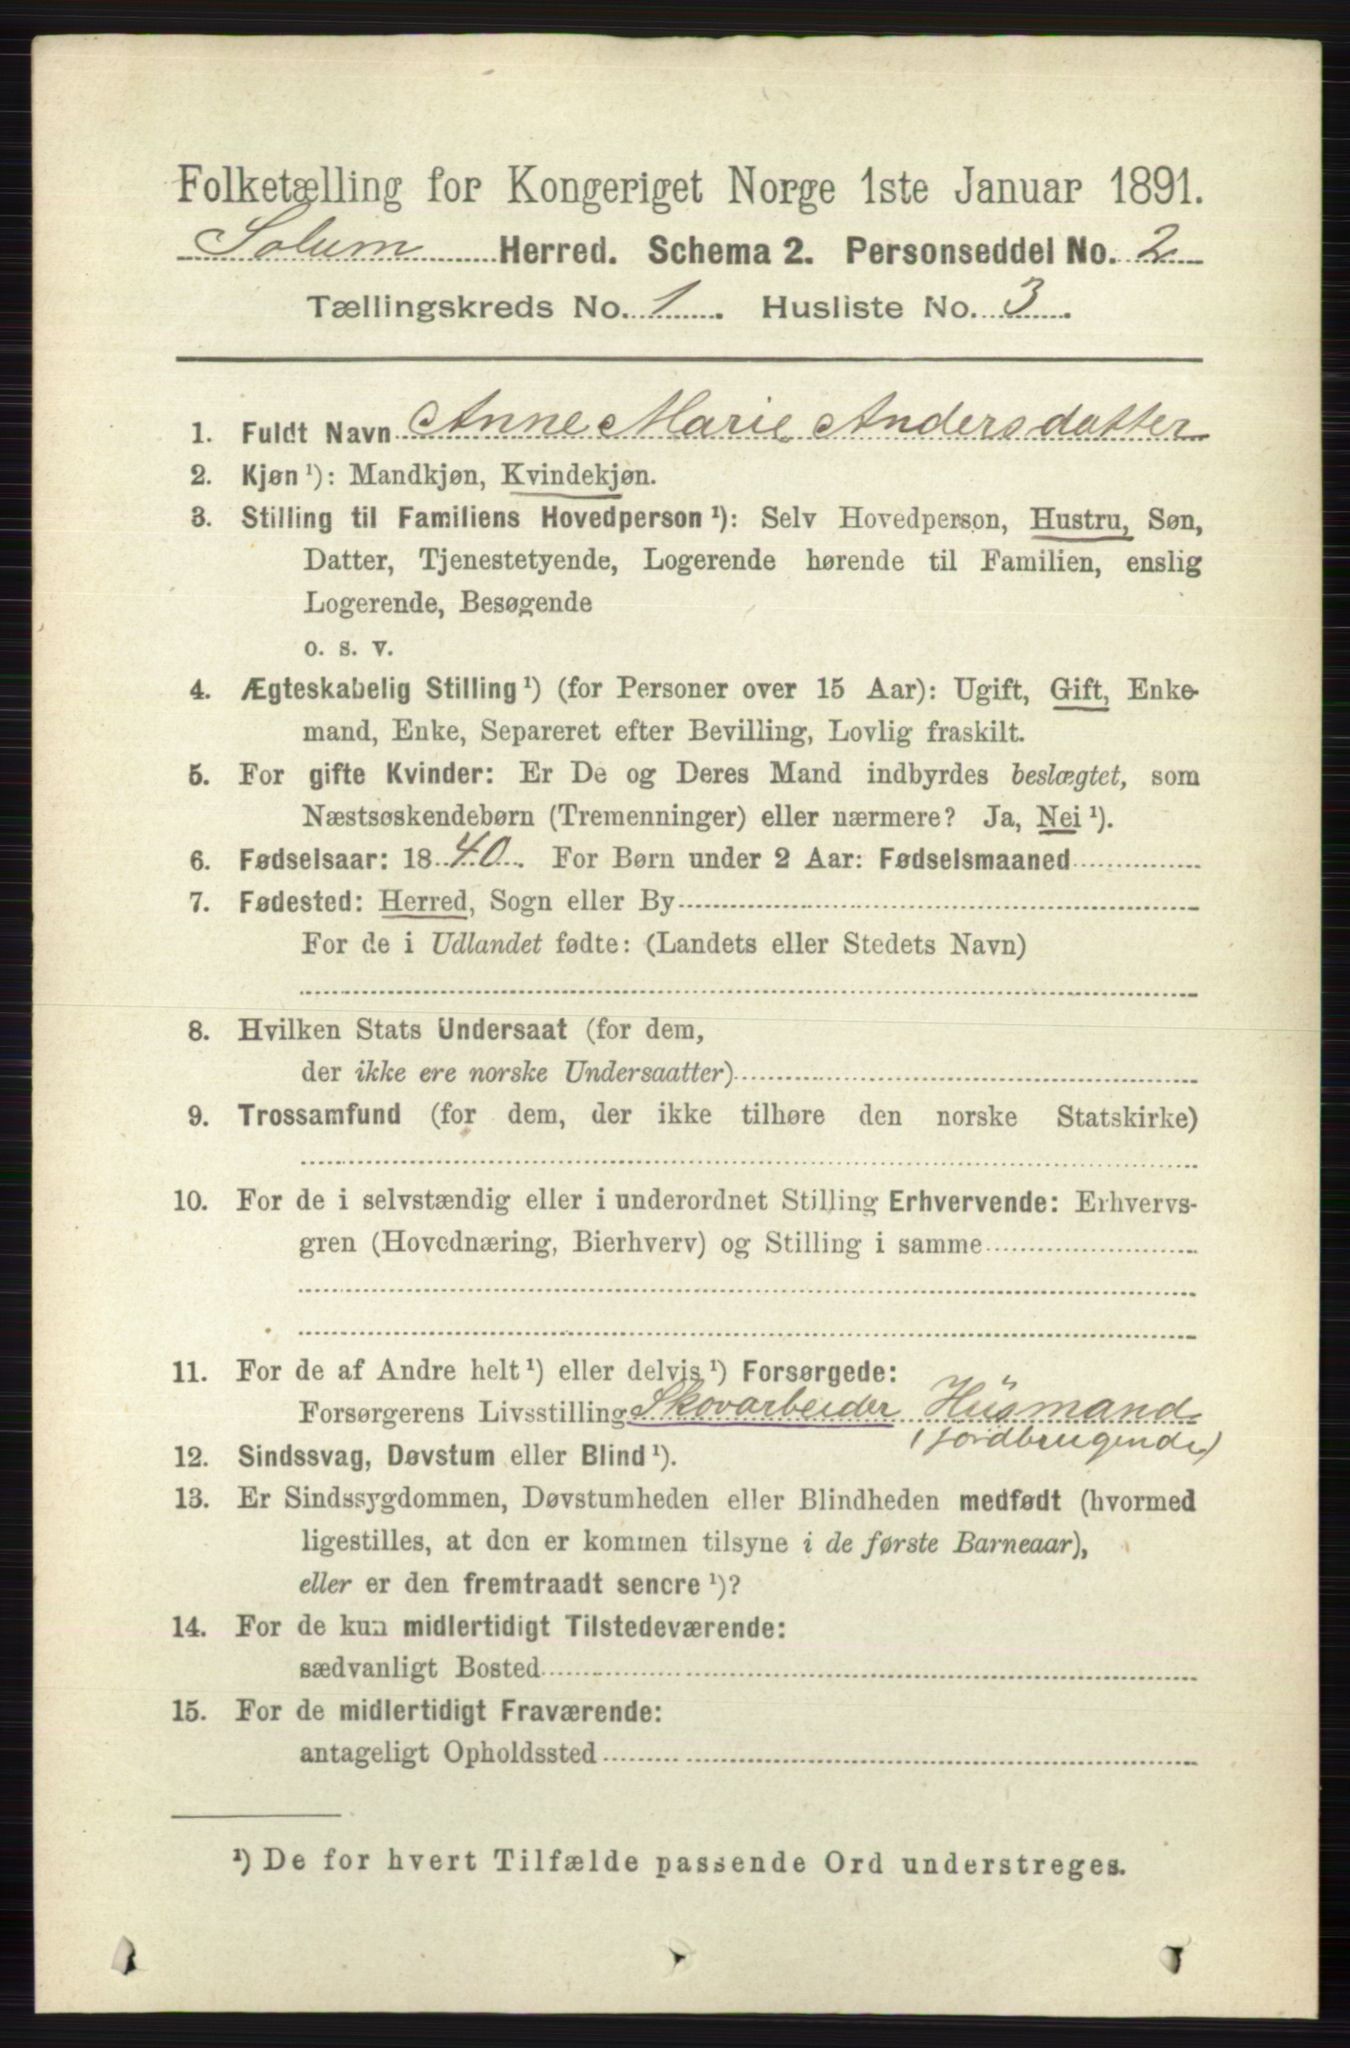 Folketælling for Kongeriget Norge 1ste Januar 1891.
Solum Herred. Schema 2. Personseddel No. 2
Tællingskreds No. 1. Husliste No. 3.
1. Fuldt Navn Anne Marie Andersdatter
2. Kjøn ¹): Mandkjøn, Kvindekjøn.
3. Stilling til Familiens Hovedperson ¹): Selv Hovedperson, Hustru, Søn,
Datter, Tjenestetyende, Logerende hørende til Familien, enslig
Logerende, Besøgende
o. s. v.
4. Ægteskabelig Stilling ¹) (for Personer over 15 Aar): Ugift, Gift, Enke-
mand, Enke, Separeret efter Bevilling, Lovlig fraskilt.
5. For gifte Kvinder: Er De og Deres Mand indbyrdes beslægtet, som
Næstsøskendebørn (Tremenninger) eller nærmere? Ja, Nei ¹).
6. Fødselsaar: 1840. For Børn under 2 Aar: Fødselsmaaned
7. Fødested: Herred, Sogn eller By
For de i Udlandet fødte: (Landets eller Stedets Navn)
8. Hvilken Stats Undersaat (for dem,
der ikke ere norske Undersaatter)
9. Trossamfund (for dem, der ikke tilhøre den norske Statskirke)
10. For de i selvstændig eller i underordnet Stilling Erhvervende: Erhvervs-
gren (Hovednæring, Bierhverv) og Stilling i samme
11. For de af Andre helt ¹) eller delvis ¹) Forsørgede:
Forsørgerens Livsstilling Skovarbeider Húsmand
(jordbrugende)
12. Sindssvag, Døvstum eller Blind ¹).
13. Er Sindssygdommen, Døvstumheden eller Blindheden medfødt (hvormed
ligestilles, at den er kommen tilsyne i de første Barneaar),
eller er den fremtraadt senere ¹)?
14. For de kun midlertidigt Tilstedeværende:
sædvanligt Bosted
15. For de midlertidigt Fraværende:
antageligt Opholdssted
¹) De for hvert Tilfælde passende Ord understreges.